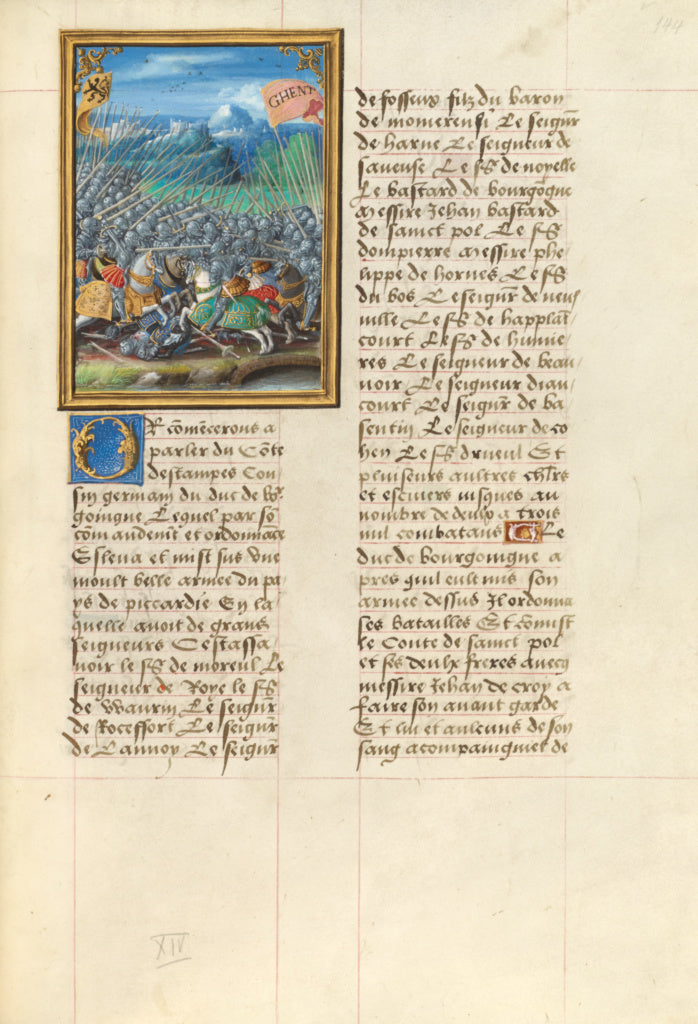 144
GHENT
Or cōmencerons a
parler du Cōte
destampes Cou
sin germain du duc de br̄
goingne Lequel par sō
cōmandemēt et ordonnāce
Esleua et mist sus vne
moult belle armee du pa
ys de piccardie En la
quelle auoit de grans
seigneurs Cestassa
uoir le sr̄ de moreul Le
seigneur de Roye le sr̄
de waurin Le seignr̄
de Roceffort Le seignr̄
de Lannoy Le seignr̄
de fosseux filz du baron
de Le seignr̄
de harne Le seigneur de
saueuse Le sr̄ de noyelle
Le bastard de bourgōgne
Messire Jehan bastard
de sainct pol Le sr̄
dompierre Messire phe
lippe de hornes Le sr̄
du bos Le seignr̄ de neuf
uille Le sr̄ de happlaī
court Le sr̄ de humie
res Le seigneur de beau
uoir Le seigneur diau
court Le seignr̄ de ba
sentin Le seigneur de co
hen Le sr̄ dreueul Et
pluiseurs aultres chlr̄s
et escuiers iusques au
nombre de deux a trois
mil combatans Le
duc de bourgoingne a
pres quil eult mis son
armee dessus Il ordonna
ses batailles Et cōmist
le Conte de sainct pol
et ses deulx freres auecq
messire Jehan de croy a
faire son auant garde
Et lui et aulcuns de son
sang acompaingniet de
XIV